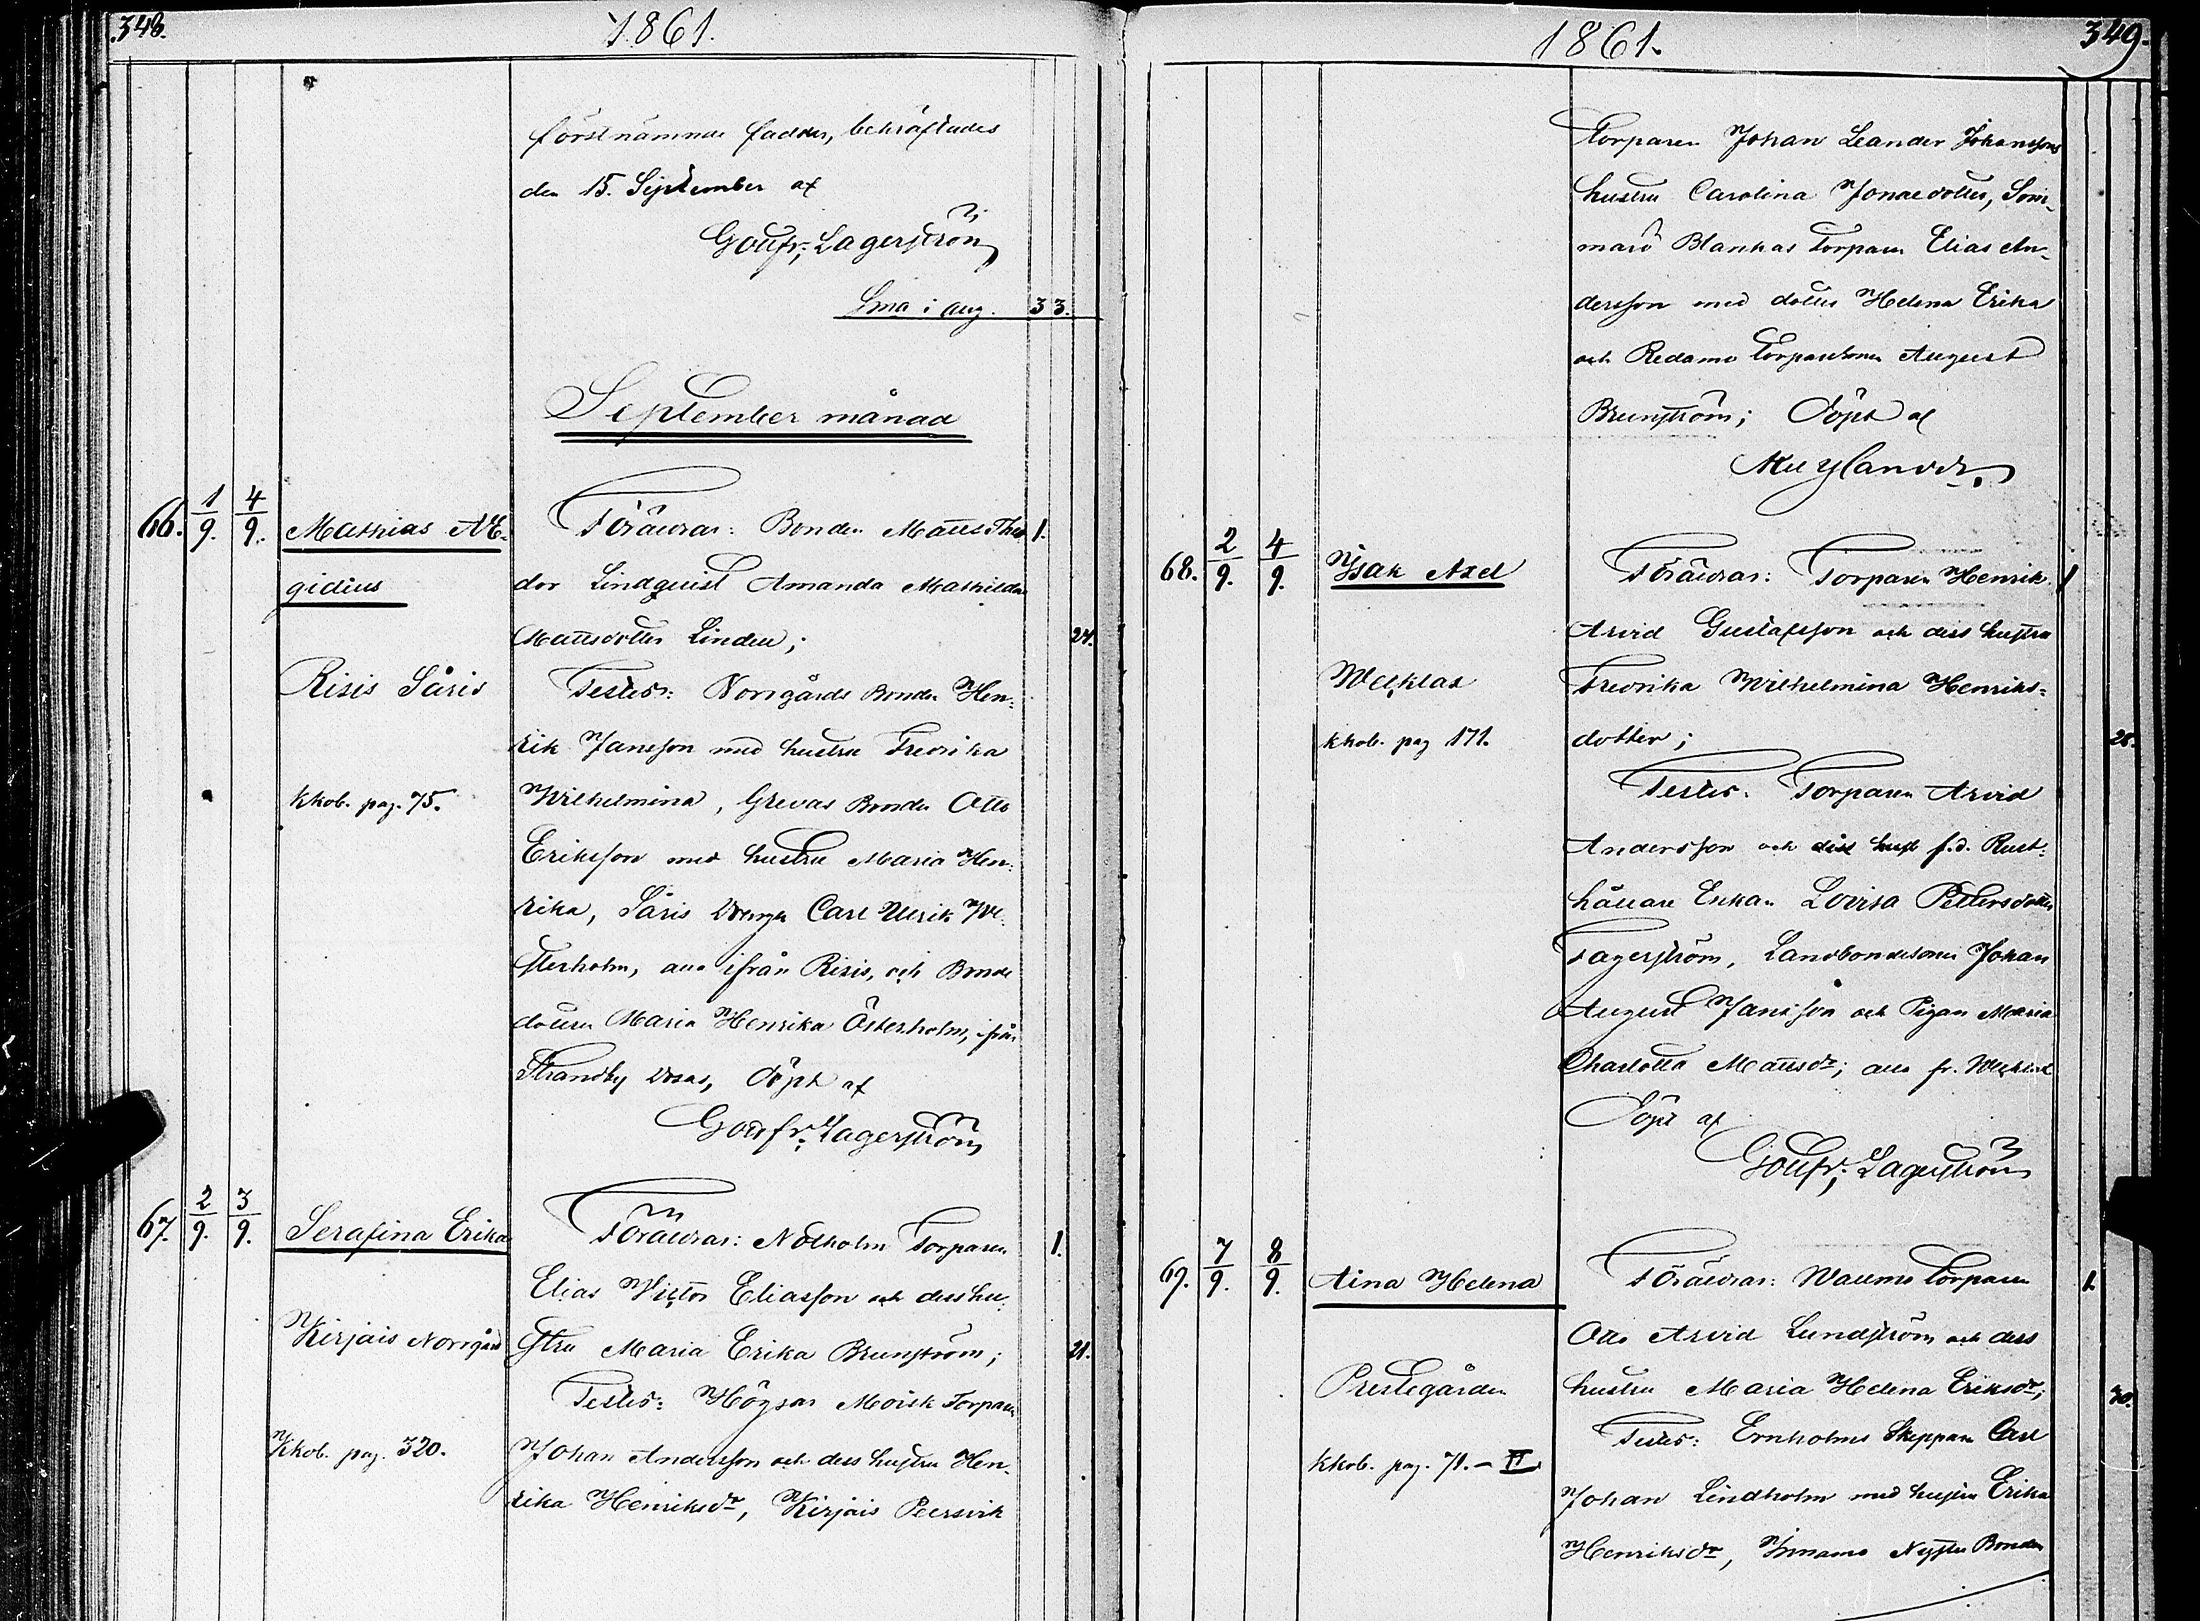 348.
1861.
förstnämnde fadder, bekräftades
den 15. September af
Gottfr. Lagerström
Sma i Aug. 33.
September månad
66. 1/9. 4/9. Mathias AE-
gidius
Risis Såris
Kkob. pag. 75.
Föräldrar: Bonden Matts Theo 1.
dor Lindquist Amanda Mathilda
Mattsdotter Linden; 24.
Testes: Norrgårds Bonden Hen-
rik Jansson med hustru Fredrika
Wilhelmina, Grevas Bonden Otto
Eriksson med hustru Maria Hen-
rika, Såris Drengen Carl Ulrik We-
sterholm, alla ifrån Risis, och Bonde
dottren Maria Henrika Österholm, ifrån
Strandby, döpt af
Gottfr. Lagerström
67. 2/9. 3/9. Serafina Erika
Kirjais Norrgård
Kkob. pag. 320.
Föräldrar: Notholm Torparen 1.
Elias Victor Eliasson och dess hu-
stru Maria Erika Brunström; 21.
Testes: Högsar Moisk Torparen
Johan Andersson och dess hustru Hen-
rika Henriksdr, Kirjais Peersvik
1861.
349.
Torparen Johan Leander Johanssons
hustru Carolina Jonaedotter, Som-
marö Blankas Torparen Elias An-
dersson med dotter Helena Erika
och Redamo Torparesonen August
Brunström; Döpt af
68. 2/9. 4/9. Isak Axel
Wecklax
kkob. pag 171.
Föräldrar: Torparen Henrik 1
Arvid Gustafsson och dess hustru
Fredrika Wilhelmina Henriks-
dotter; 28.
Testes. Torparen Arvid
Andersson och dess hust f.d. Rust-
hållare Enkan Lovisa Pettersdotter
Fagerström, Landbondesonen Johan
August Jansson och Pigan Maria
Charlotta Mattsdr; alla fr. Wecklax
Döpt af
Gottfr. Lagerström
69. 7/9. 8/9. Aina Helena
Prestegården
kkob. pag. 71. - II
Föräldrar: Wallmo Torparen 1.
Otto Arvid Lundström och dess
hustru Maria Helena Eriksdr; 30.
Testes: Ernholms Skeppare Carl
Johan Lindholm med hustru Erika
Henriksdr, Innamo Nystu Bonden